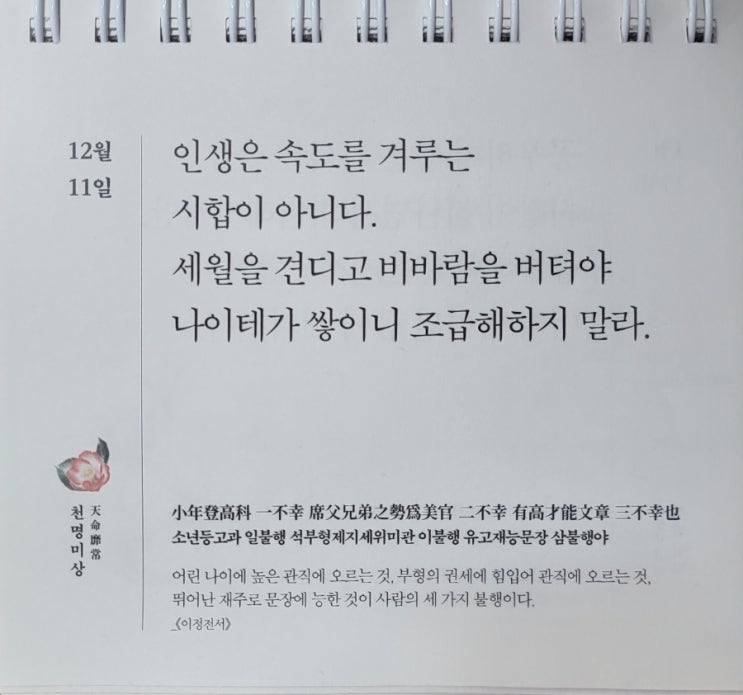 12월
11일
인생은 속도를 겨루는
시합이 아니다.
세월을 견디고 비바람을 버텨야
나이테가 쌓이니 조급해하지 말라.
天命靡常
천명미상
小年登高科 一不幸 席父兄弟之勢爲美官 二不幸 有高才能文章 三不幸也
소년등고과 일불행 석부형제지세위미관 이불행 유고재능문장 삼불행야
어린 나이에 높은 관직에 오르는 것, 부형의 권세에 힘입어 관직에 오르는 것,
뛰어난 재주로 문장에 능한 것이 사람의 세 가지 불행이다.
_《이정전서》